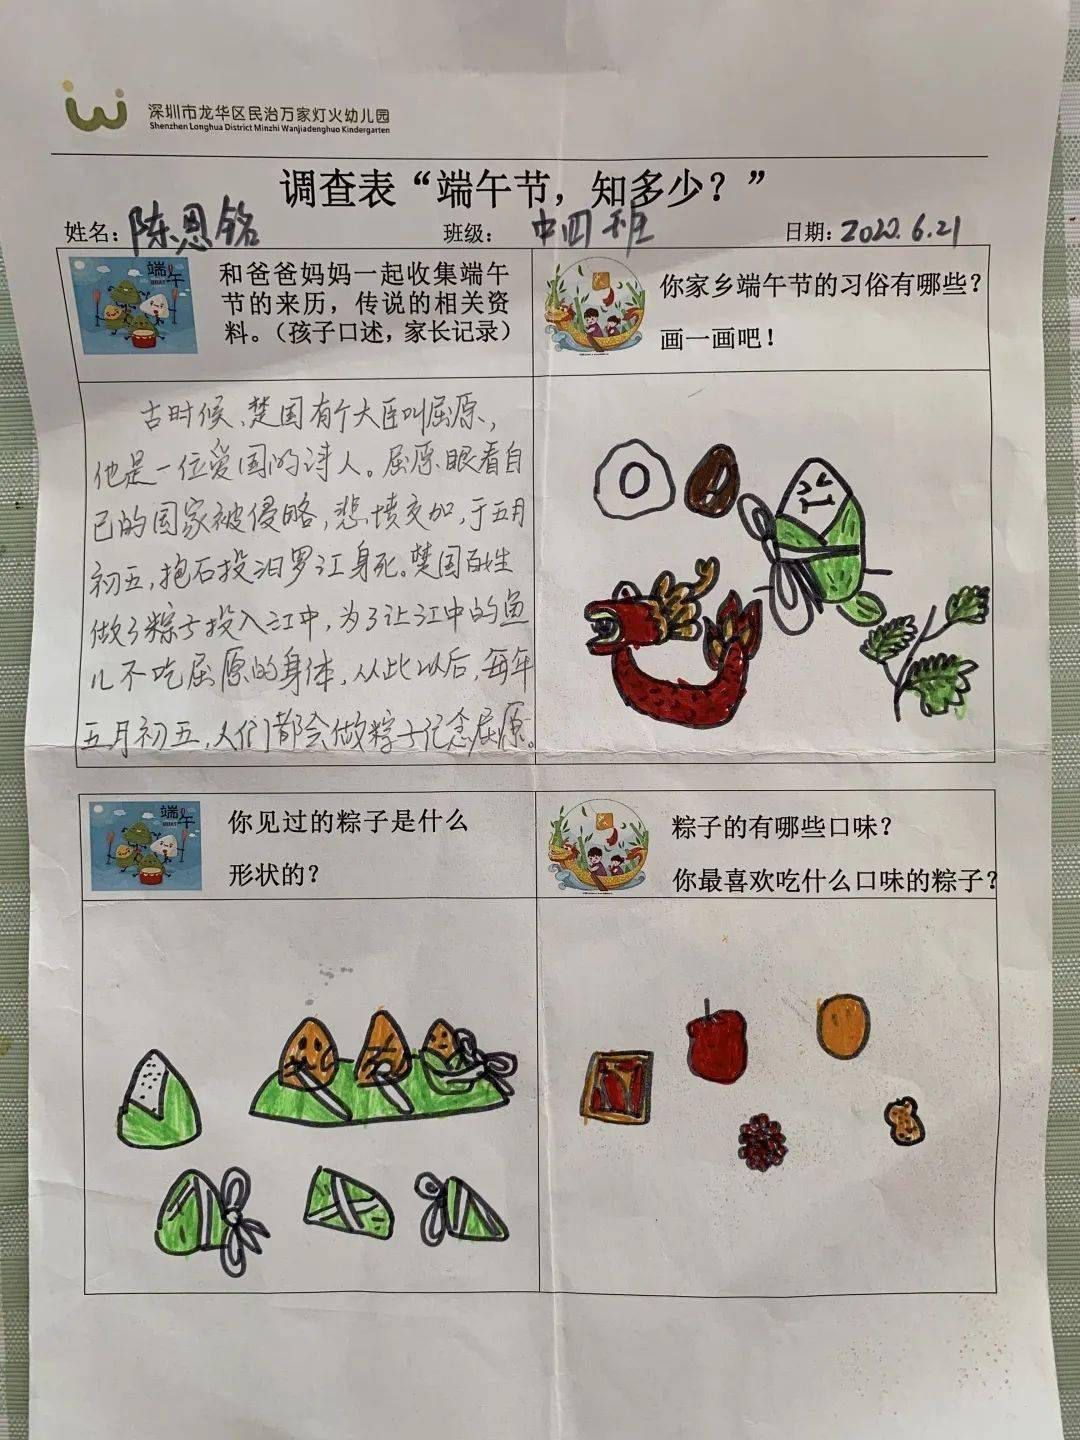 深圳市龙华区民治万家灯火幼儿园
Shenzhen Longhua District Minzhi Wanjiadenghuo Kindergarten
调查表“端午节，知多少？”
姓名：陈恩铭 班级：中四班 日期：2022.6.21
端午
和爸爸妈妈一起收集端午
节的来历，传说的相关资
料。（孩子口述，家长记录）
你家乡端午节的习俗有哪些？
画一画吧！
古时候，楚国有个大臣叫屈原，
他是一位爱国的诗人。屈原眼看自
己的国家被侵略，悲愤交加，于五月
初五，抱石投汨罗江身死。楚国百姓
做了粽子投入江中，为了让江中的鱼
儿不吃屈原的身体，从此以后，每年
五月初五，人们都会做粽子纪念屈原。
端午
你见过的粽子是什么
形状的？
粽子的有哪些口味？
你最喜欢吃什么口味的粽子？